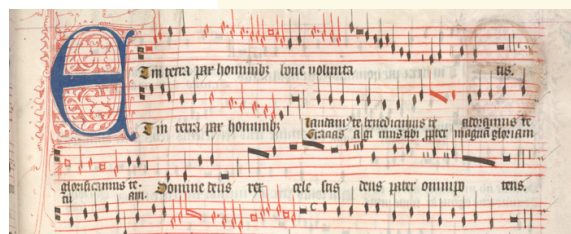 Et in terra pax hominibz bone volunta tis.
Et in terra pax hominibz laudam te benedicimus te adoramus te
Gracias agi mus tibi ppter magna gloriam
glorificamus te. Domine deus rex cele stis deus pater omnipo tens.
tu am.